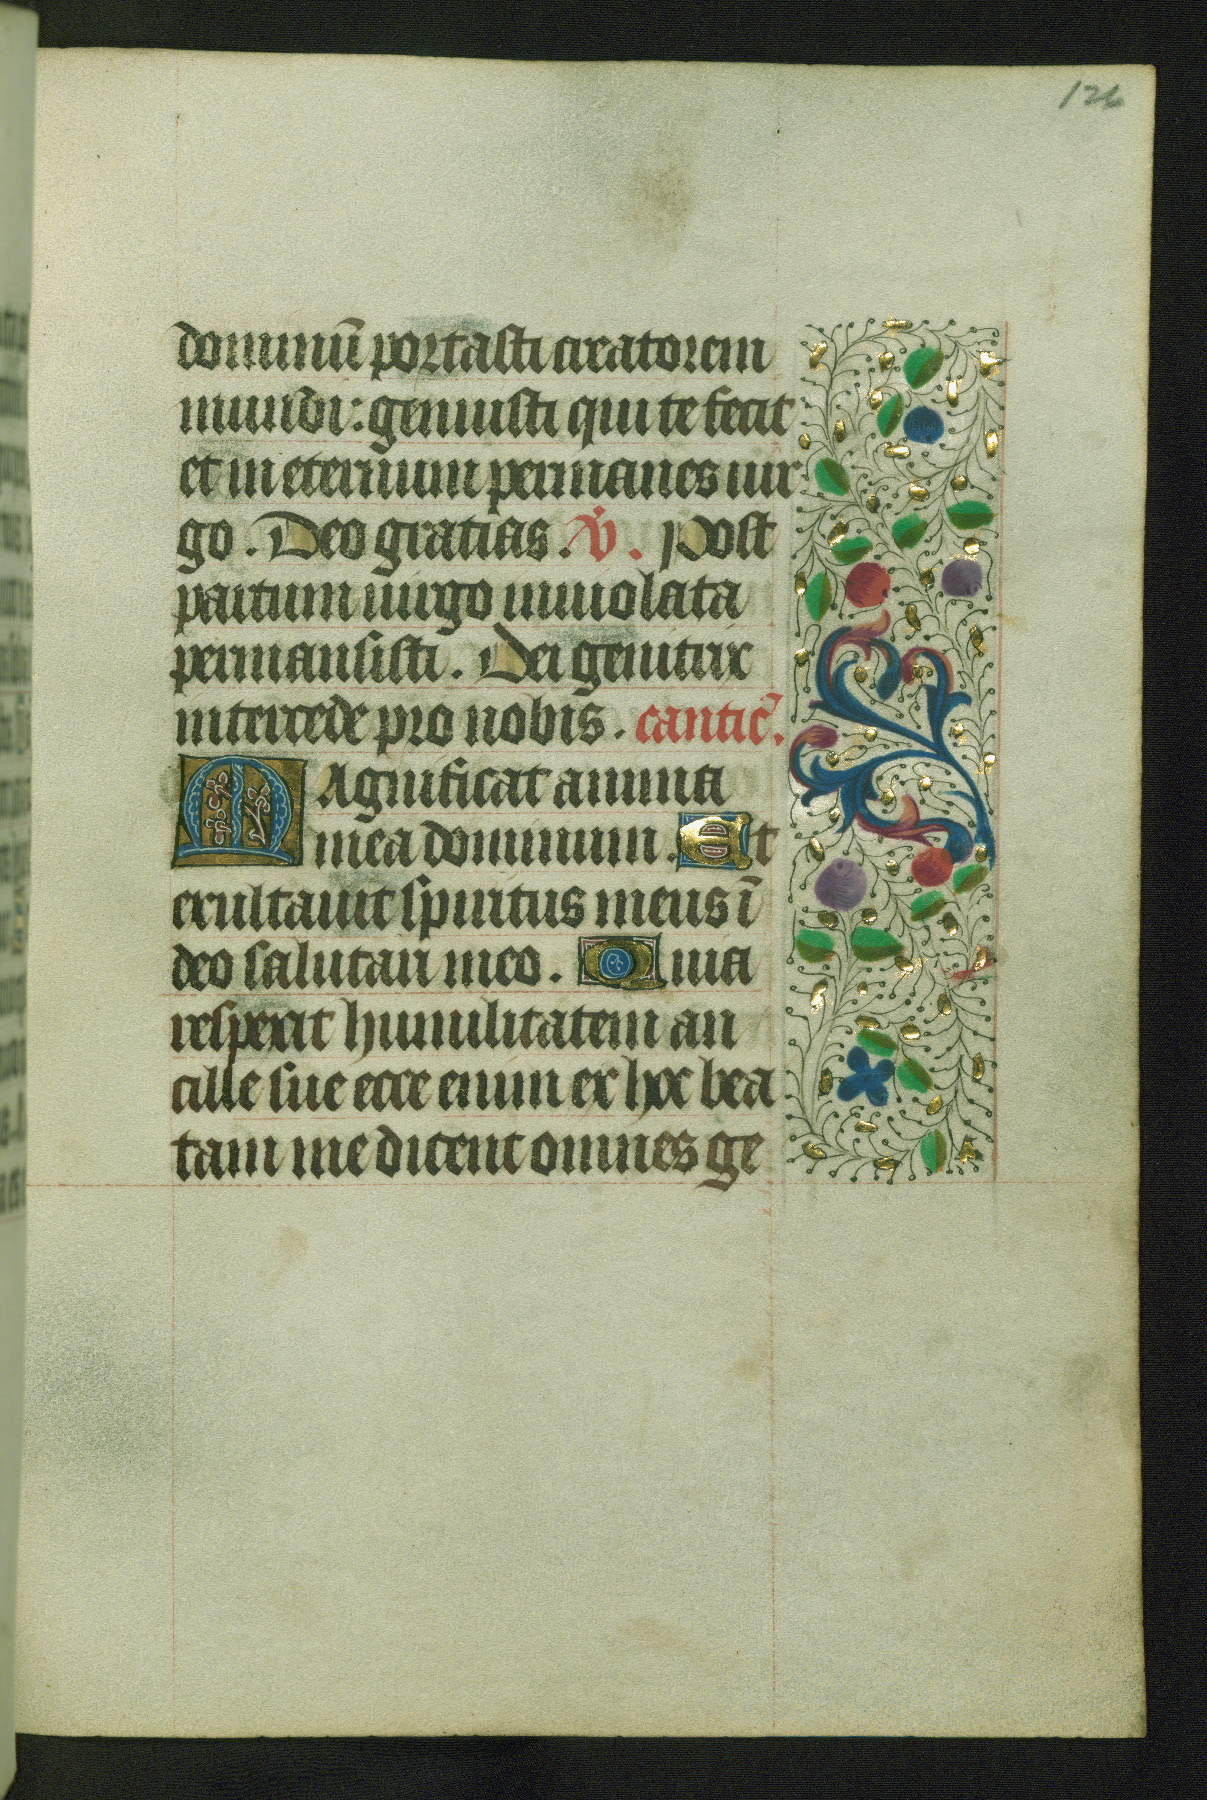 126
dominū portasti creatorem
mundi: genuisti qui te fecit
et in eternum permanes uir
go. Deo gratias. V̇. Post
partum uirgo inuiolata
permansisti. Dei genitrix
intercede pro nobis. cantic̄.
Magnificat anima
mea dominum. Et
exultauit spiritus meus ī
deo salutari meo. Quia
respexit humilitatem an
cille sue ecce enim ex hoc bea
tam me dicent omnes ge